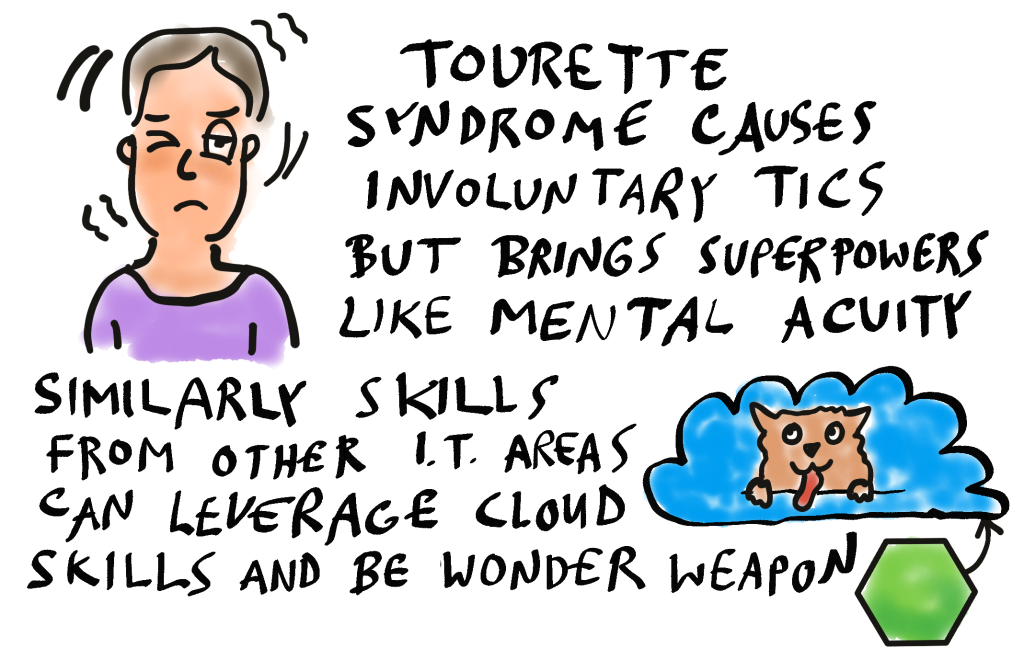 TOURETTE
SYNDROME CAUSES
INVOLUNTARY TICS
BUT BRINGS SUPERPOWERS
LIKE MENTAL ACUITY
SIMILARLY SKILLS
FROM OTHER I.T. AREAS
CAN LEVERAGE CLOUD
SKILLS AND BE WONDER WEAPON